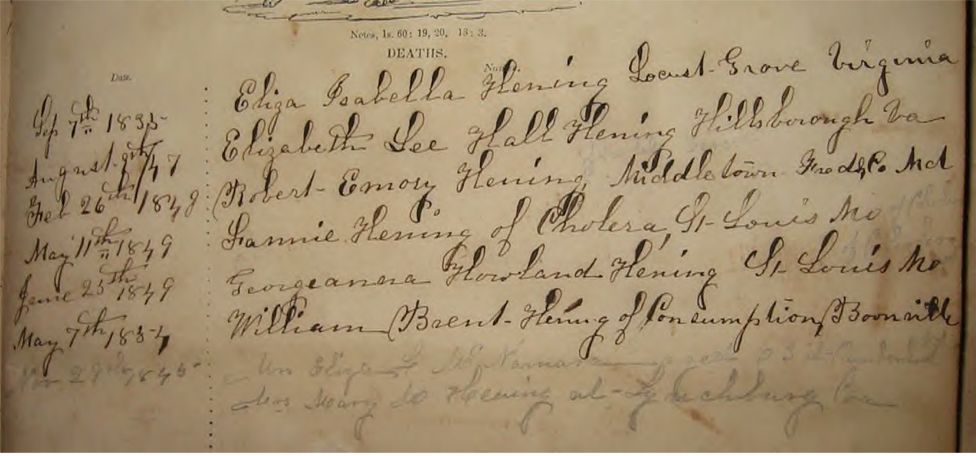 Notes, Is. 60: 19, 20, 13: 3.
DEATHS.
Date. Name.
Sep 7th 1835 Eliza Isabella Hening Locust-Grove Virginia
August 9th /47 Elizabeth Lee Hall Hening Hillsborough Va
Feb 26th 1848 Robert-Emory Hening Middletown Fredk Co Md
May 11th 1849 Fannie Hening of Cholera, St-Louis Mo
June 25th 1849 Georgeanna Howland Hening St Louis Mo
May 7th 1854 William Brent-Hening of Consumption, Boonville
Nov 29th 1845 Mrs Eliza
Mrs Mary Hening at-Lynchburg Va